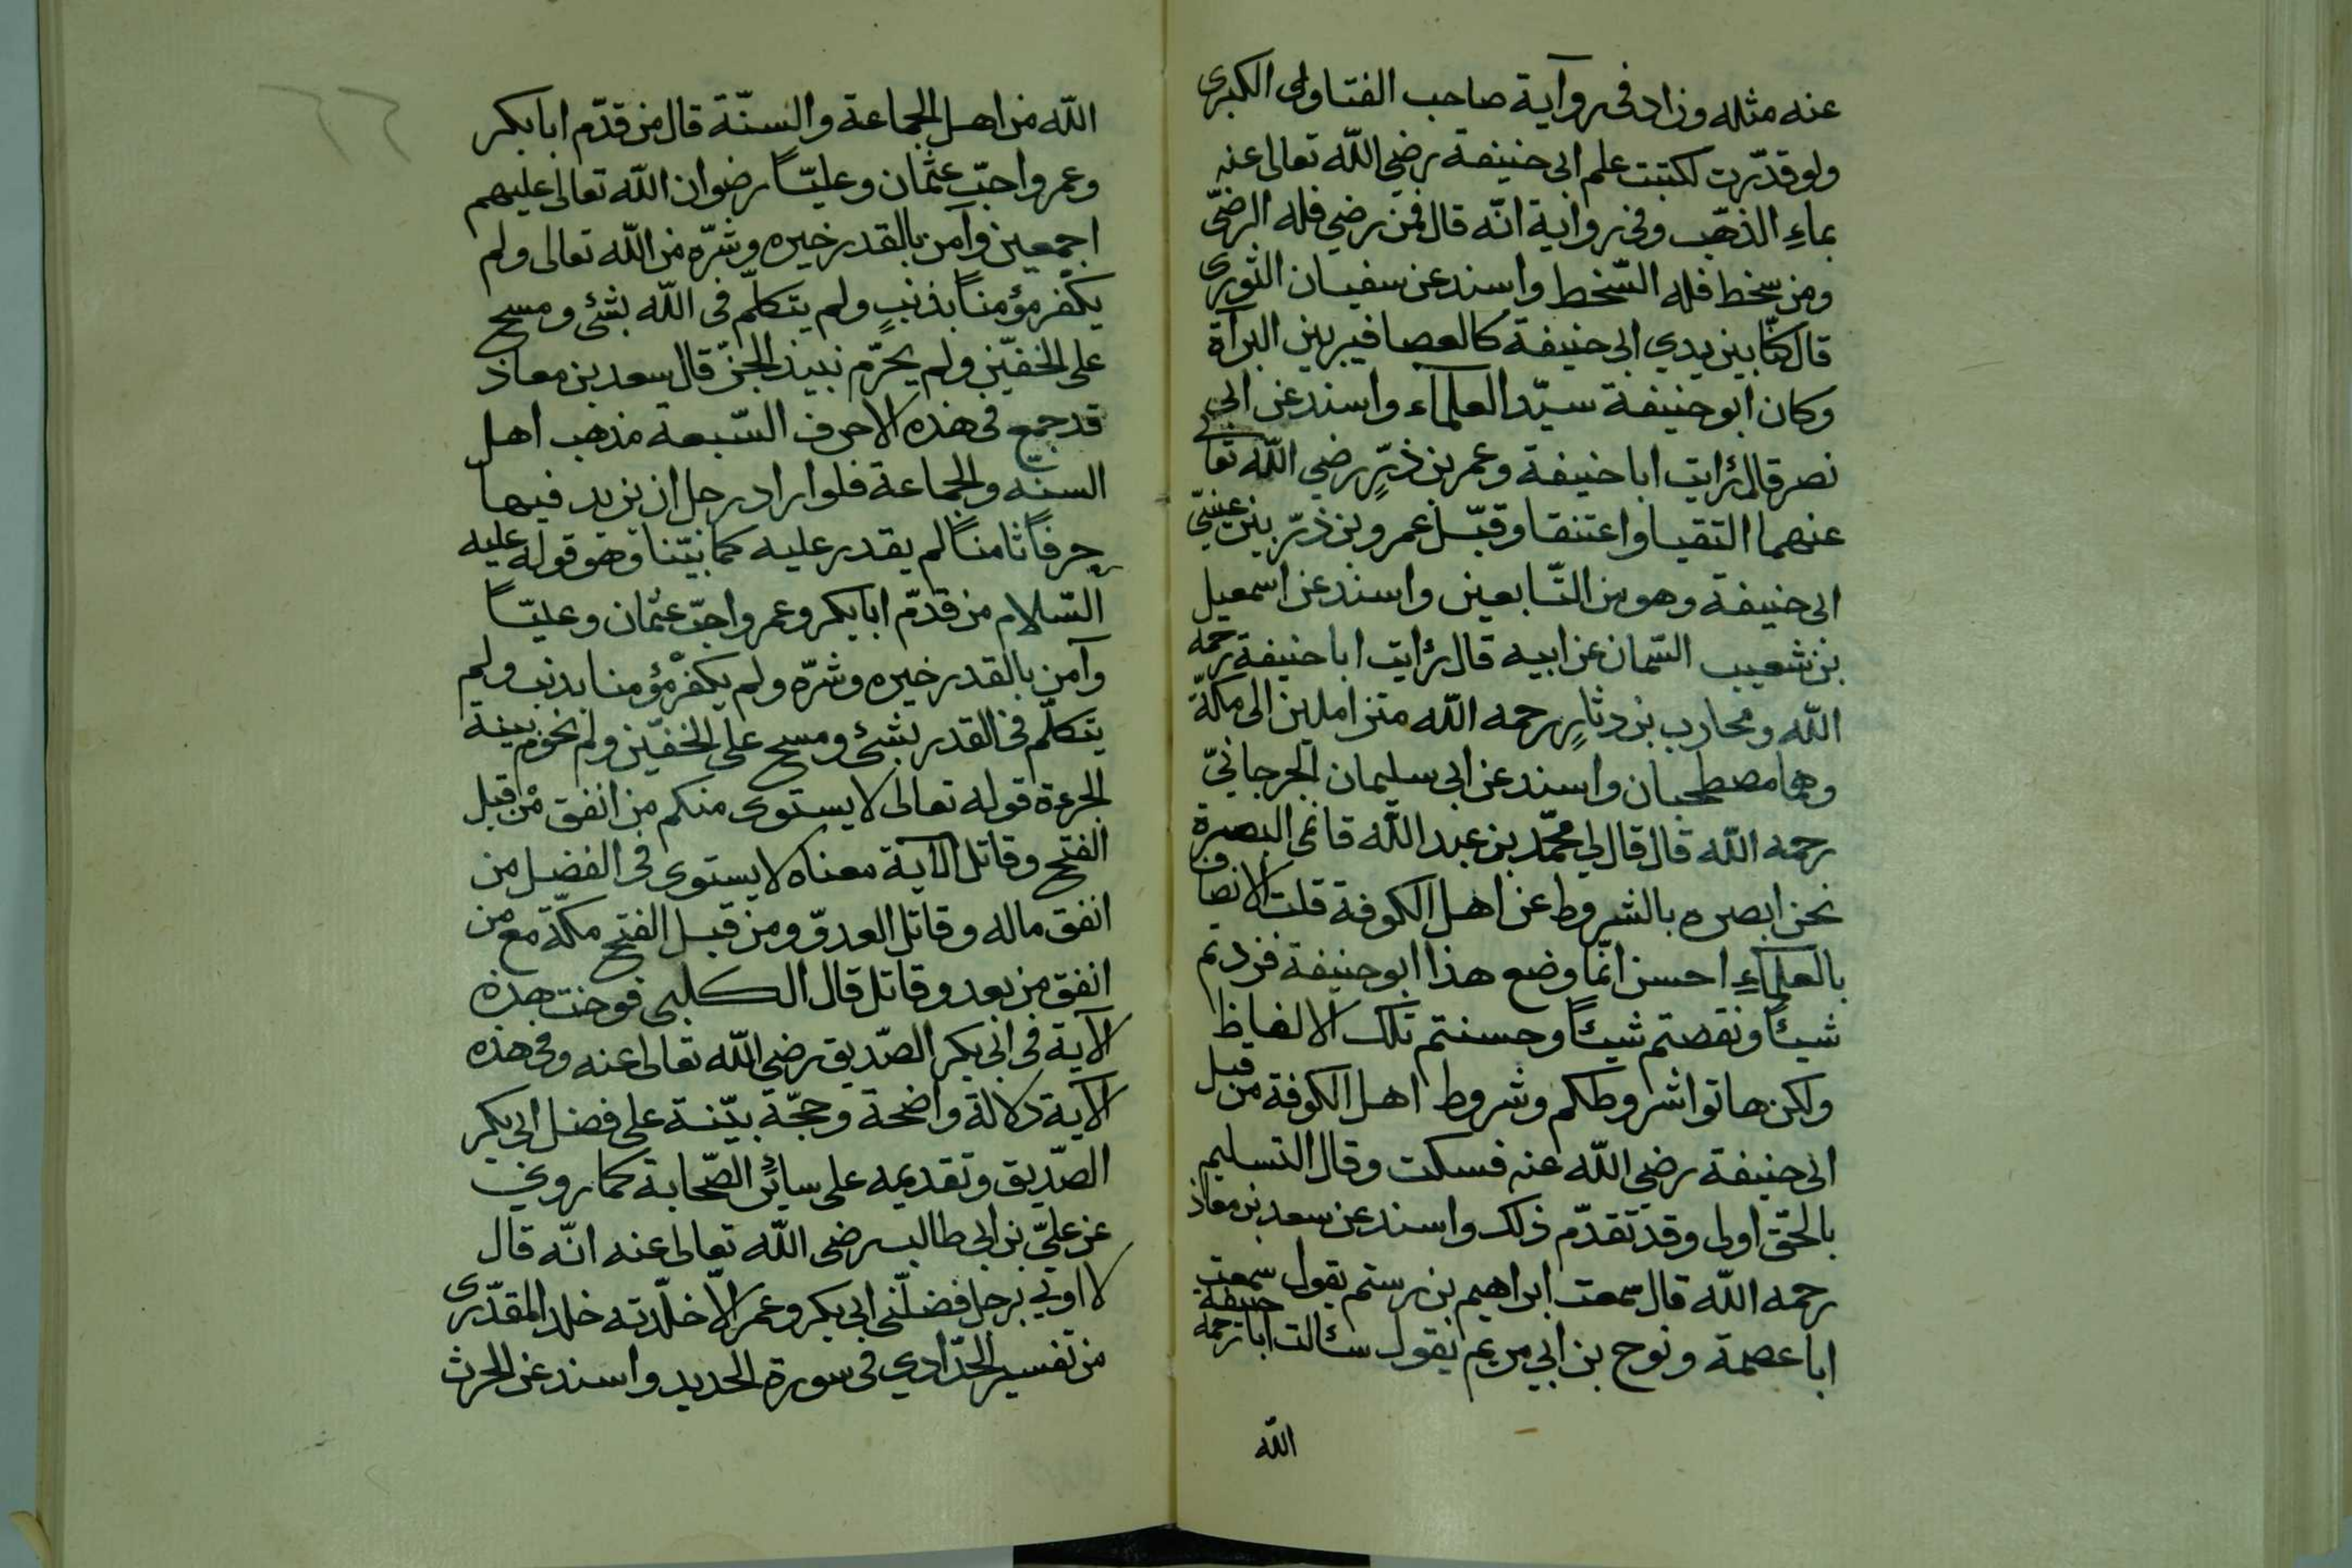 عنه مثله وزاد فى روآية صاحب الفتاوى الكبرى
ولو قدّرت لكتبت علم ابى حنيفة رضي اللّه تعالى عنه
بماءِ الذهّب وفى رواية انّه قال فمن رضي فله الرضّى
ومن سخط فله السّخط واسند عن سفيان الثورى
قال كنّا بين يدي ابى حنيفة كالعصافير بين البرآة
وكان ابو حنيفة سيّد العلمآء واسند عن ابى
نصر قال رُايت ابا حنيفة وعمر بن ذرٍّ رضي اللّه تعا
عنهما التقيا واعتنقا وقبّل عمر وبن ذرّ بين عينيّ
ابى حنيفة وهو من التّابعين واسند عن اسمعيل
بن شعيب السّمان عن ابيه قال رُايت ابا حنيفة رحمه
اللّه ومحارب بن دثارٍ رحمه اللّه متزاملين الى مكّة
وهما مصطحبان واسند عن ابى سليمان الجرجانيّ
رحمه اللّه قال قال لي محمّد بن عبد اللّه قاضى البصرة
نحن ابصره بالشروط عن اهل الكوفة قلت الانصاف
بالعلماءِ احسن انّما وضع هذا ابو حنيفة فزدتم
شيئاً ونقصتم شيئاً وحسنتم تلك الالفاظ
ولكن هاتوا شروطكم وشروط اهل الكوفة من قبل
ابى حنيفة رضي اللّه عنه فسكت وقال التسليم
بالحقّ اولى وقد تقدّم ذلك واسند عن سعد بن معاذ
رحمه اللّه قال سمعت ابراهيم بن رستم يقول سمعت
ابا عصمة ونوح بن ابي مريم يقول سئالت ابا حنيفة رحمه
اللّه
اللّه من اهل الجماعة والسنّة قال من قدّم ابا بكر
وعمر واحبّ عثمان وعليّاً رضوان اللّه تعالى عليهم
اجمعين وآمن بالقدر خيره وشرّه من اللّه تعالى ولم
يكفّر مؤمناً بذنبٍ ولم يتكلّم فى اللّه بشئ ومسح
على الخفيّن ولم يحرّم نبيذ الجرّ قال سعد بن معاذ
قد جمع فى هذه الاحرف السّبعة مذهب اهل
السنّه والجماعة فلو اراد رجل ان يزيد فيها
حرفاً ثامناً لم يقدر عليه كما بيّنا وهو قوله عليه
السّلام من قدّم ابا بكر وعمر واحبّ عثمان وعليّاً
وآمن بالقدر خيره وشرّه ولم يكفر مؤمنا بذنب ولم
يتكلّم فى القدر بشئ ومسح على الخفيّن ولم
الجرعة قوله تعالى لا يستوى منكم من انفق من قبل
الفتح وقاتل الآية معناه لا يستوى فى الفضل من
انفق ماله وقاتل العدوّ ومن قبل الفتح مكّة مع من
انفق من بعد وقاتل قال الكلبى هذه
الآية فى ابى بكر الصّديق رضي اللّه تعالى عنه وفى هذه
الآية دلالة واضحة وحجّة بيّنة على فضل ابى بكر
الصّديق وتقديمه على سائر الصّحابة كما روي
عن عليّ بن ابى طالب رضى اللّه تعالى عنه انّه قال
لا اوتي برجل فضلّنى ابى بكر وعمر الاّ خلّدته خلد المقدّرى
من تفسير الحدّادي فى سورة الحديد واسند عن الحرث